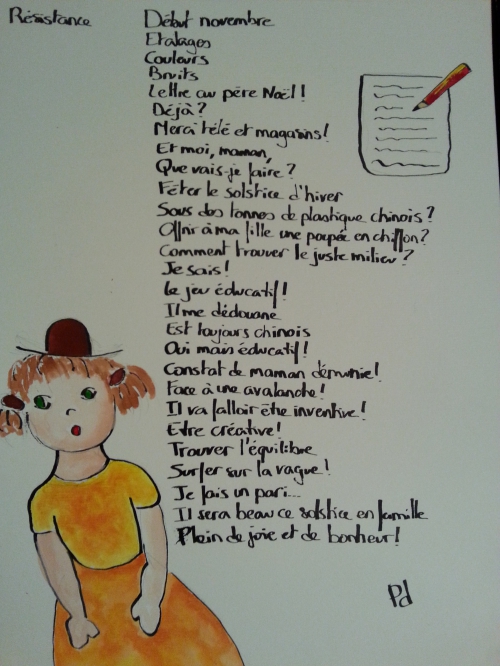 Résistance
Début novembre
Etalages
Couleurs
Bruits
Lettre au père Noël !
Déjà ?
Merci télé et magasins !
Et moi, maman,
Que vais-je faire ?
Fêter le solstice d'hiver
Sous des tonnes de plastique chinois ?
Offrir à ma fille une poupée en chiffon ?
Comment trouver le juste milieu ?
Je sais !
Le jeu éducatif !
Il me dédouane
Est toujours chinois
Oui mais éducatif !
Constat de maman démunie !
Face à une avalanche !
Il va falloir être inventive !
Etre créative !
Trouver l'équilibre
Surfer sur la vague !
Je fais un pari...
Il sera beau ce solstice en famille
Plein de joie et de bonheur !
Pd